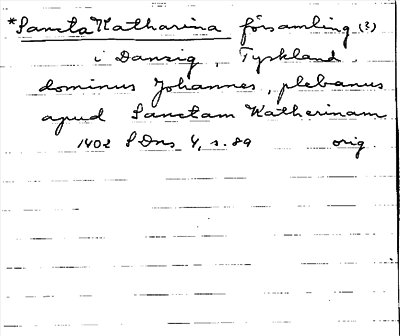 *Sancta Katharina församling (?)
i Danzig, Tyskland.
dominus Johannes, plebanus
apud Sanctam Katherinam
1402 SDns 4, s. 89 orig.